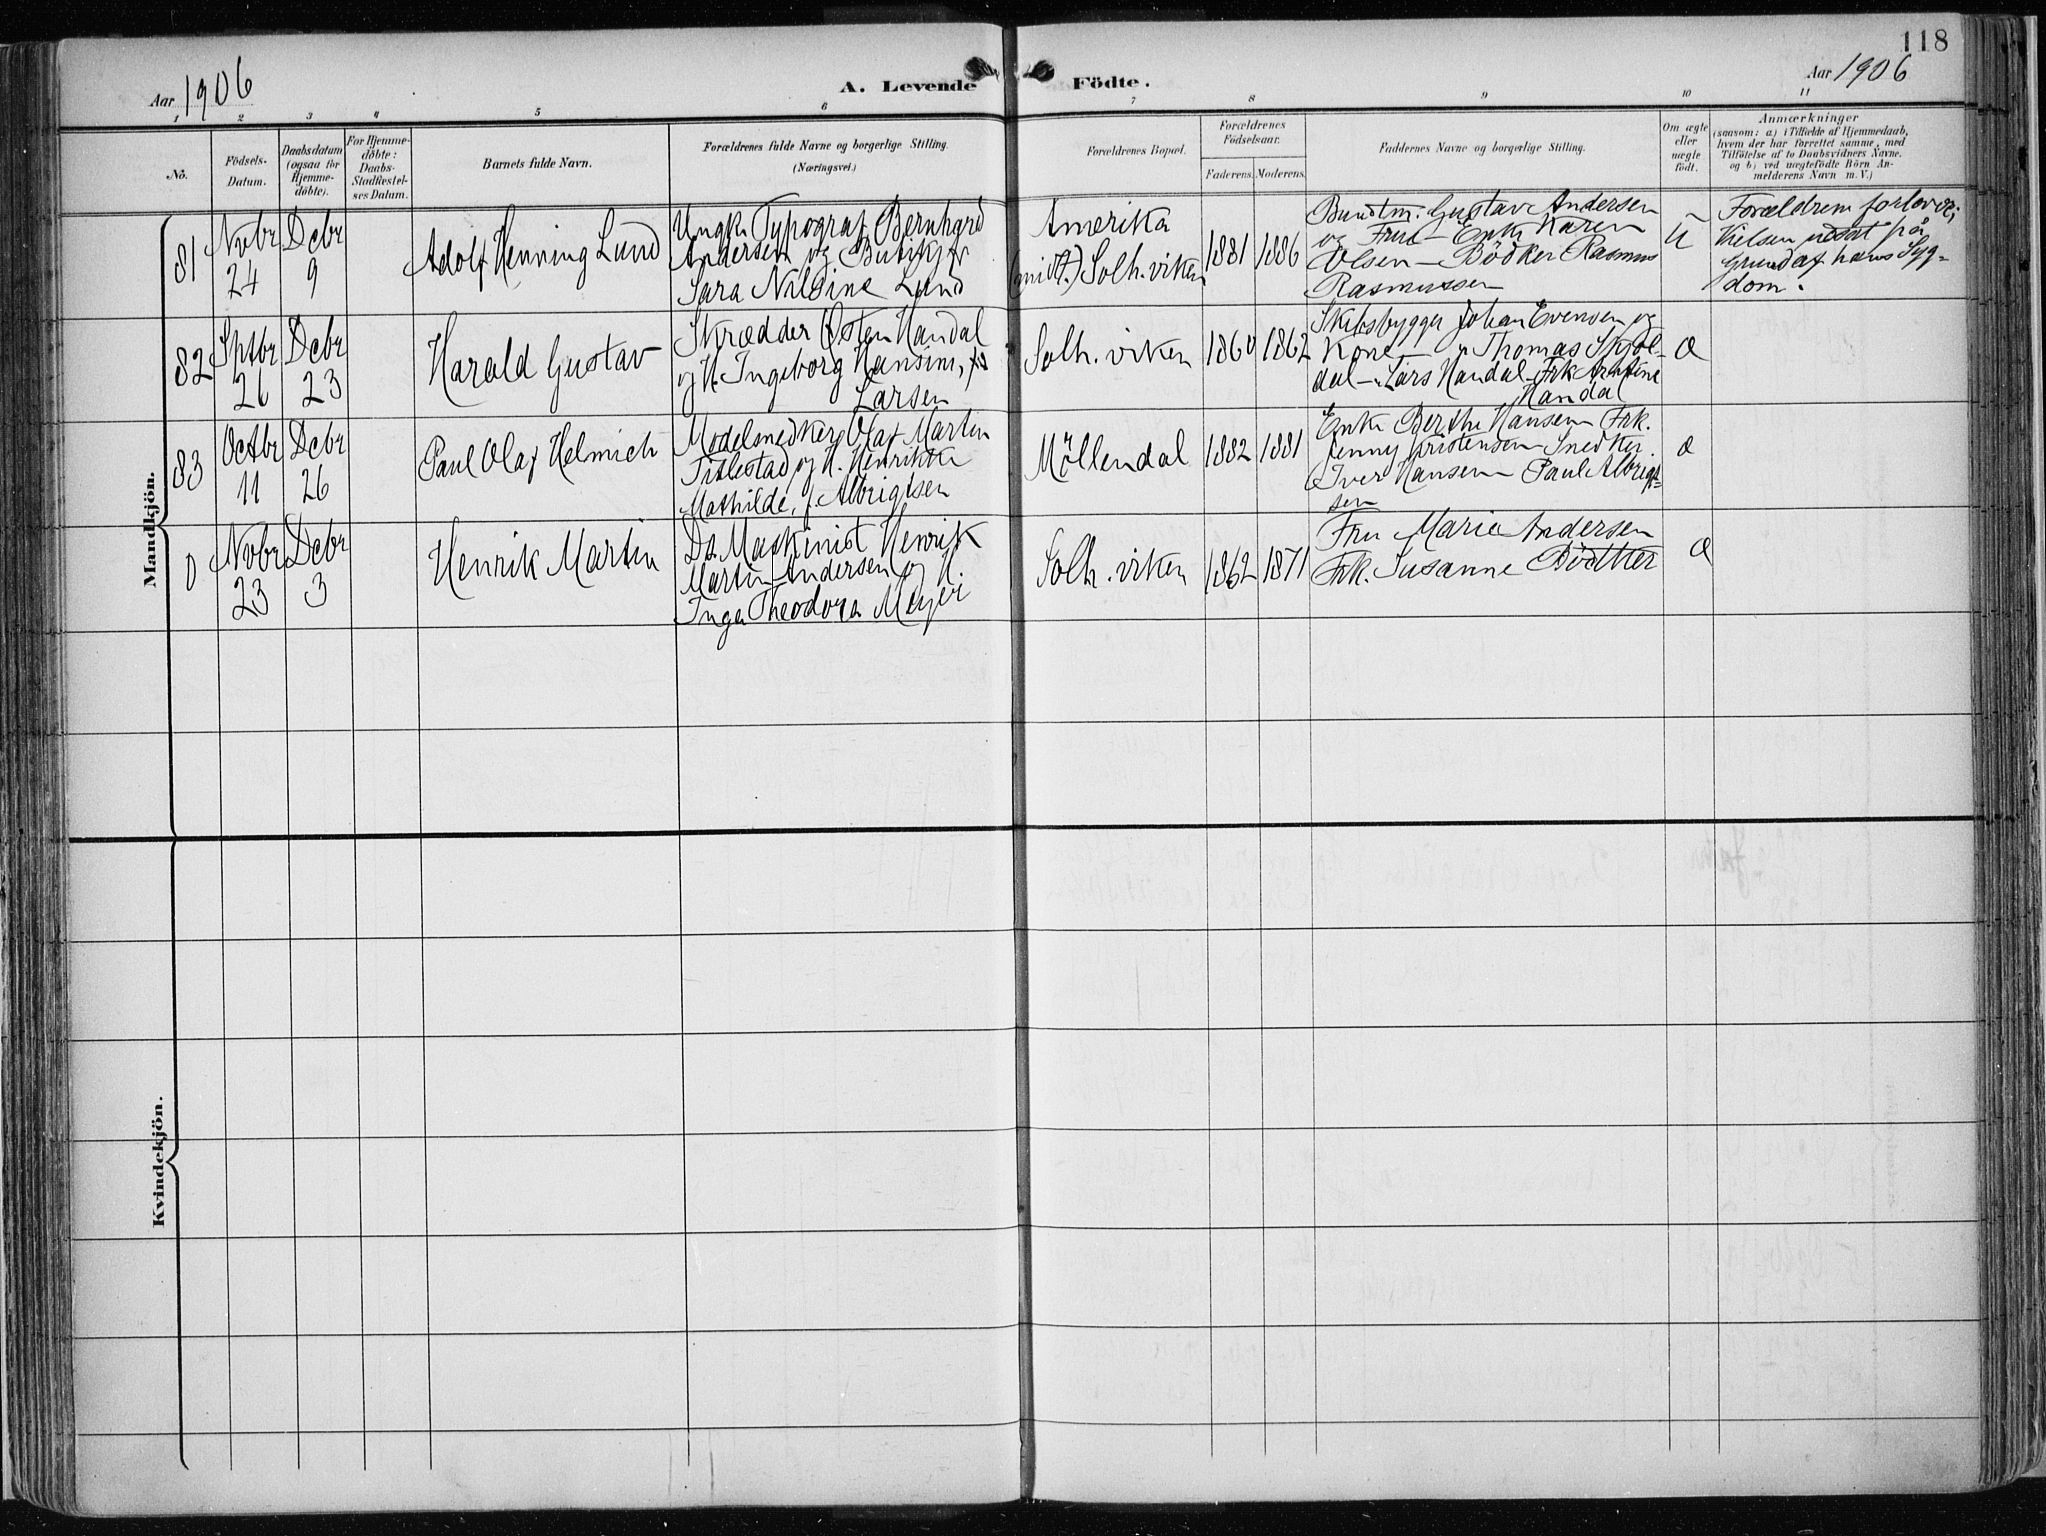 118
Aar 1906
A. Levende Födte.
Aar 1906
1 2 3 4 5 6 7 8 9 10 11
No.
Födsels-
Datum.
Daabsdatum
(ogsaa for
Hjemme-
döbte).
For Hjemme-
döbte:
Daabs-
Stadfæstel-
ses Datum.
Barnets fulde Navn.
Forældrenes fulde Navne og borgerlige Stilling.
(Næringsvei.)
Forældrenes Bopæl.
Forældrenes
Födselsaar.
Faderens. Moderens.
Faddernes Navne og borgerlige Stilling.
Om ægte
eller
uægte
födt.
Anmærkninger
(saasom: a) i Tilfælde af Hjemmedaab,
hvem der har forrettet samme, med
Tilföielse af to Daabsvidners Navne,
og b) ved uægtefödte Börn An-
melderens Navn m. V.)
Mandkjön.
81
Novbr
24
Dcbr
9
Adolf Henning Lund
Ungk. Typograf Bernhard
Andersen og
Sara Nilsine Lund
Amerika
(midt.) Solh. viken
1881
1886
Bundtm. Gustav Andersen
og Frue – Enke Karen
Olsen – Bödker Rasmus
Rasmussen
u
Forældrene forlovede;
Vielsen udsat på
Grund af hans Syg-
dom.
82
Sptbr
26
Dcbr
23
Harald Gustav
Skrædder Østen Handal
og H. Ingeborg Hansine, f.
Larsen
Solh. viken
1860
1862
Skibsbygger Johan Evensen og
Kone – Thomas
dal – Lars Handal – Frk
Handal
æ
83
Octbr
11
Dcbr
26
Paul Olaf Helmich
Modelsnedker Olaf Martin
Titlestad og H. Henrikke
Mathilde, f. Albrigtsen
Möllendal
1882
1881
Enke Berthe Hansen Frk.
Jenny Kristensen Snedker
Iver Hansen Paul Albrigt-
sen
æ
0
Novbr
23
Dcbr
3
Henrik Martin
Ds. Maskinist Henrik
Martin Andersen og H.
Inga Theodora Meyer
Solh. viken
1862
1871
Fru Marie Andersen
Frk. Susanne Bödtker
æ
Kvindekjön.